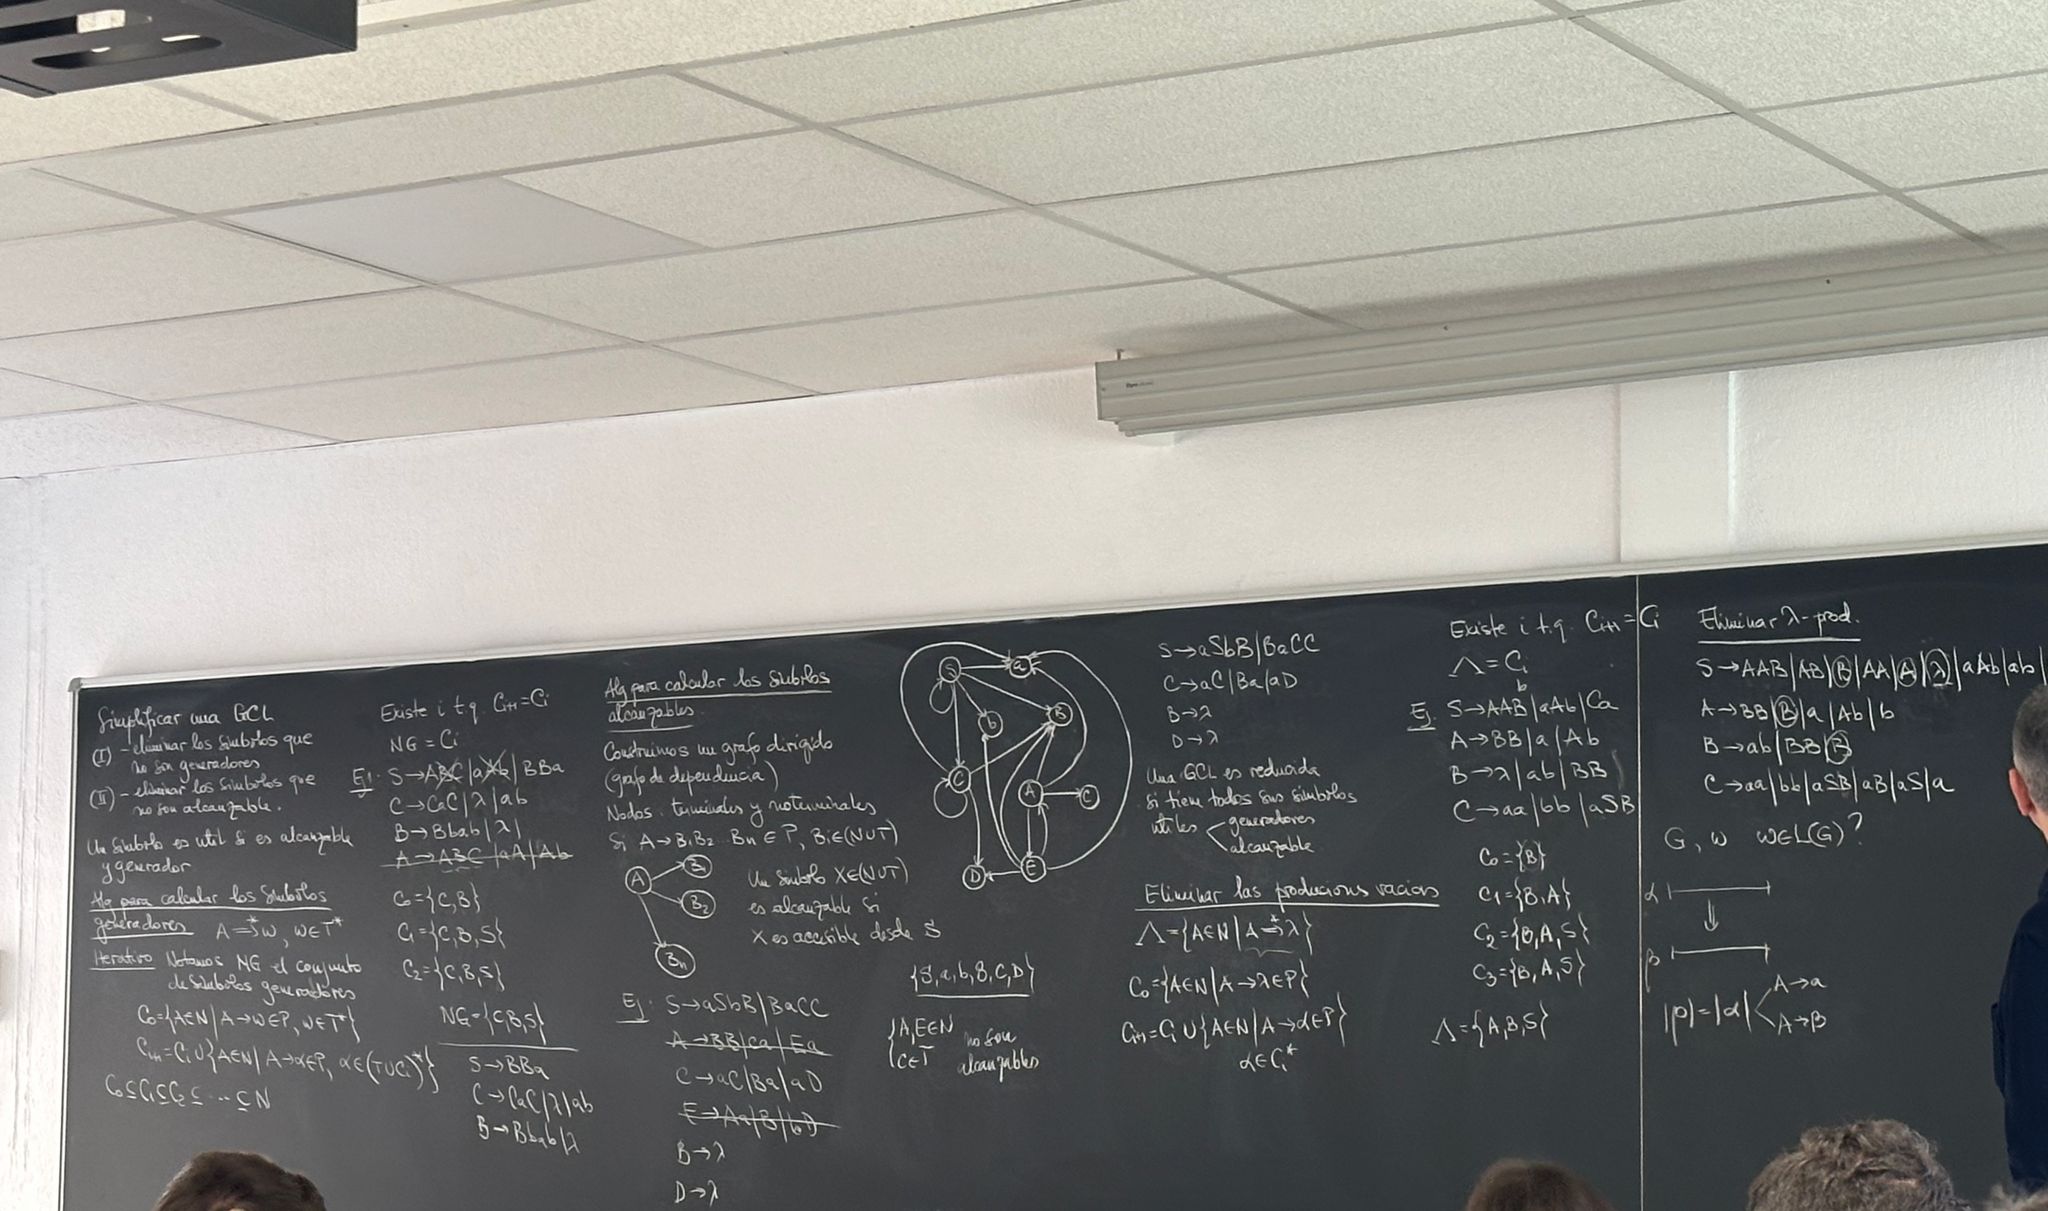 Simplificar una GCL
(I) - eliminar los símbolos que
no son generadores
(II) - eliminar los símbolos que
no son alcanzable.
Un símbolo es util si es alcanzable
y generador
Alg para calcular los símbolos
generadores A ⇒* w, w∈T*
Iterativo Notamos NG el conjunto
de símbolos generadores
C₀={A∈N | A→w∈P, w∈T*}
Cᵢ₊₁=Cᵢ∪{A∈N | A→α∈P, α∈(T∪Cᵢ)*}
C₀⊆C₁⊆C₂⊆ ... ⊆N
Existe i t.q. Cᵢ₊₁=Cᵢ
NG = Cᵢ
Ej. S→ABC|aAb|BBa
C→CaC|λ|ab
B→Bbab|λ|
A→ABC|aA|Ab
C₀={C,B}
C₁={C,B,S}
C₂={C,B,S}
NG={C,B,S}
S→BBa
C→CaC|λ|ab
B→Bbab|λ
Alg para calcular los símbolos
alcanzables.
Construimos un grafo dirigido
(grafo de dependencia)
Nodos: terminales y noterminales
Si A→B₁B₂...Bₙ∈P, Bᵢ∈(N∪T)
A
B₁
B₂
Bₙ
Un símbolo X∈(N∪T)
es alcanzable si
X es accesible desde S
Ej. S→aSbB|BaCC
A→BB|ca|Ea
C→aC|Ba|aD
E→Aa|B|bD
B→λ
D→λ
S
a
b
B
C
A
C
D
E
{S,a,b,B,C,D}
{A,E∈N
C∈T
no son
alcanzables
S→aSbB|BaCC
C→aC|Ba|aD
B→λ
D→λ
Una GCL es reducida
si tiene todos sus símbolos
útiles
generadores
alcanzable
Eliminar las producions vacias
Λ={A∈N | A⇒*λ}
C₀={A∈N | A→λ∈P}
Cᵢ₊₁=Cᵢ∪{A∈N | A→α∈P}
α∈Cᵢ*
Existe i t.q. Cᵢ₊₁=Cᵢ
Λ=Cᵢ
b
Ej. S→AAB|aAb|Ca
A→BB|a|Ab
B→λ|ab|BB
C→aa|bb|aSB
C₀={B}
C₁={B,A}
C₂={B,A,S}
C₃={B,A,S}
Λ={A,B,S}
Eliminar λ-prod.
S→AAB|AB|B|AA|A|λ|aAb|ab|
A→BB|B|a|Ab|b
B→ab|BB|B
C→aa|bb|aSB|aB|aS|a
G, w w∈L(G)?
α
⇓
β
|β|=|α|
A→a
A→B